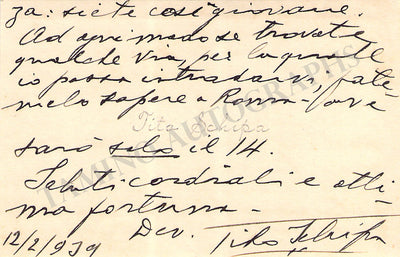 za: siete così giovane.
Ad ogni modo se trovate
qualche via, per la quale
io possa intradarvi, fate
melo sapere a Roma - ove
Tito Schipa
sarò solo il 14.
Saluti cordiali e otti
ma fortuna -
Dev. Tito Schipa
12/2/939
TAMINO AUTOGRAPHS